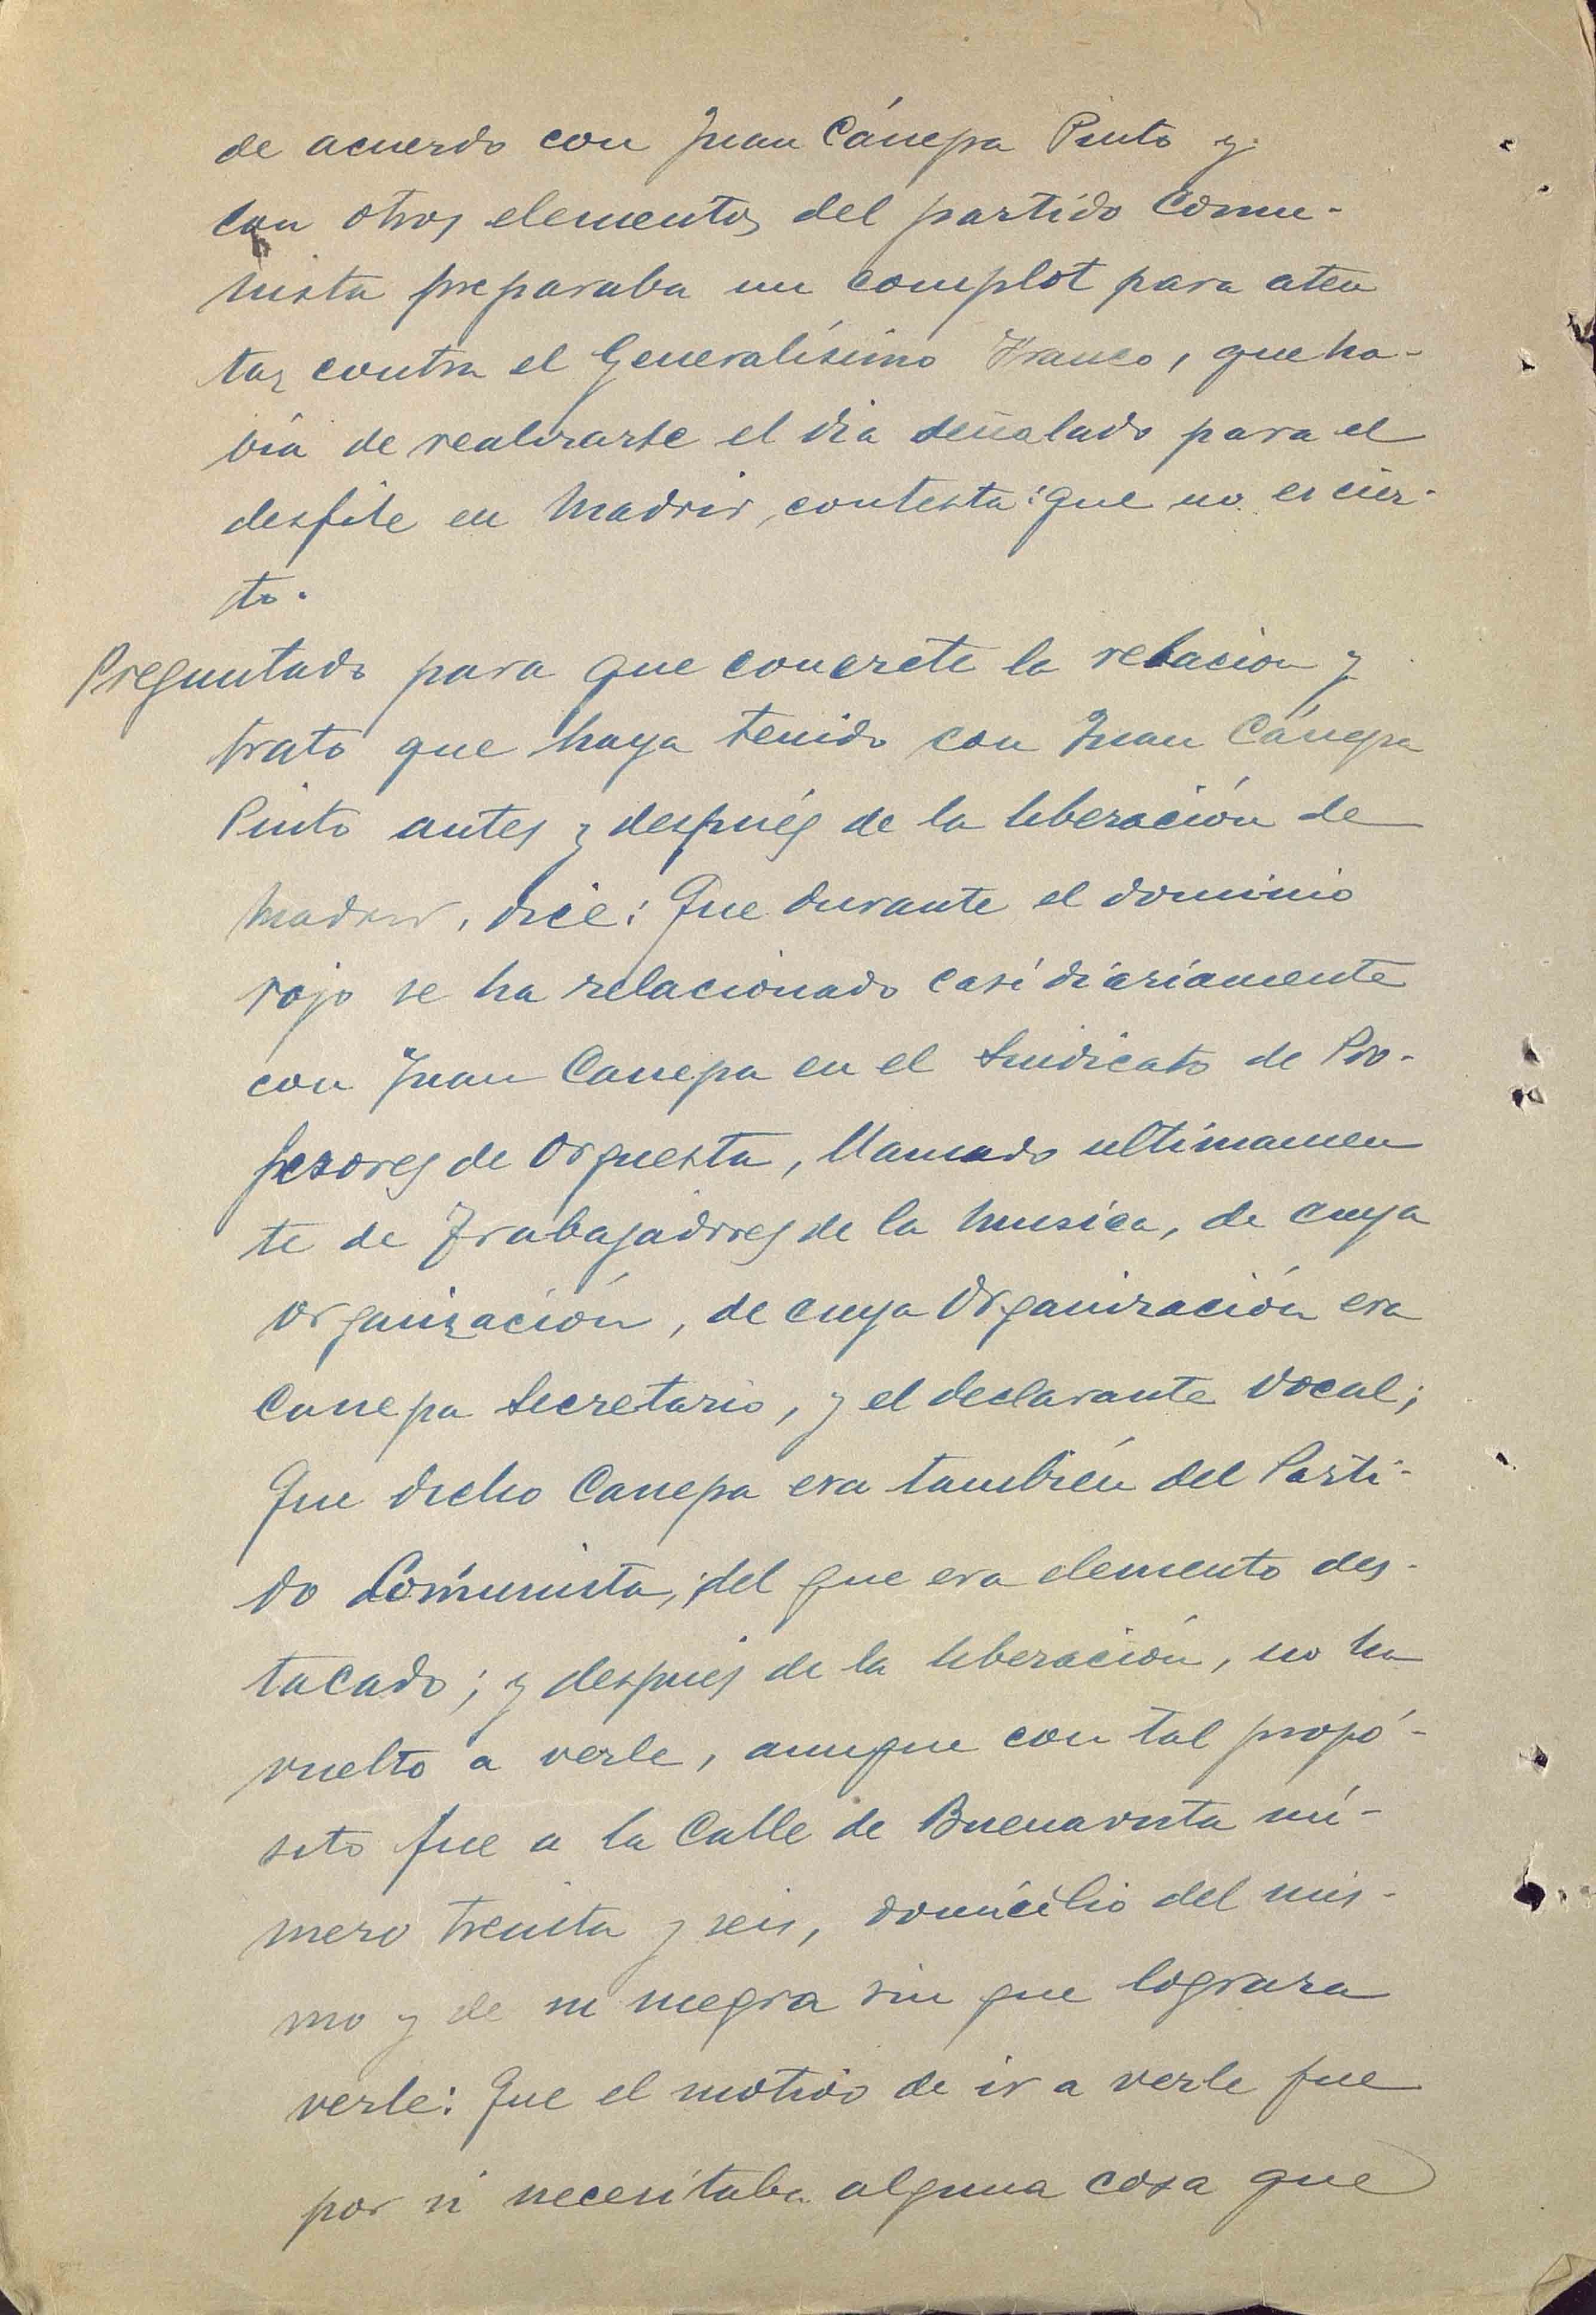 de acuerdo con Juan Cánepa Pinto y
con otros elementos del partido comu-
nista preparaba un complot para aten
tar contra el Generalísimo Franco, que ha-
bía de realizarse el dia señalado para el
desfile en Madrid, contesta: Que no es cier-
to.
Preguntado para que concrete la relacion y
trato que haya tenido con Juan Cánepa
Pinto antes y después de la liberación de
Madrid, dice: Que durante el dominio
rojo se ha relacionado casi diariamente
con Juan Canepa en el Sindicato de Pro-
fesores de Orquesta, llamado ultimamen
te de Trabajadores de la Musica, de cuya
organización, de cuya Organización era
Canepa Secretario, y el declarante Vocal;
Que dicho Canepa era también del Parti-
do Comunista, del que era elemento des-
tacado; y despues de la liberación, no ha
vuelto a verle, aunque con tal propó-
sito fue a la Calle de Buenavista nú-
mero treinta y seis, domicilio del mis-
mo y de su suegra sin que lograra
verle: Que el motivo de ir a verle fue
por si necesitaba alguna cosa que